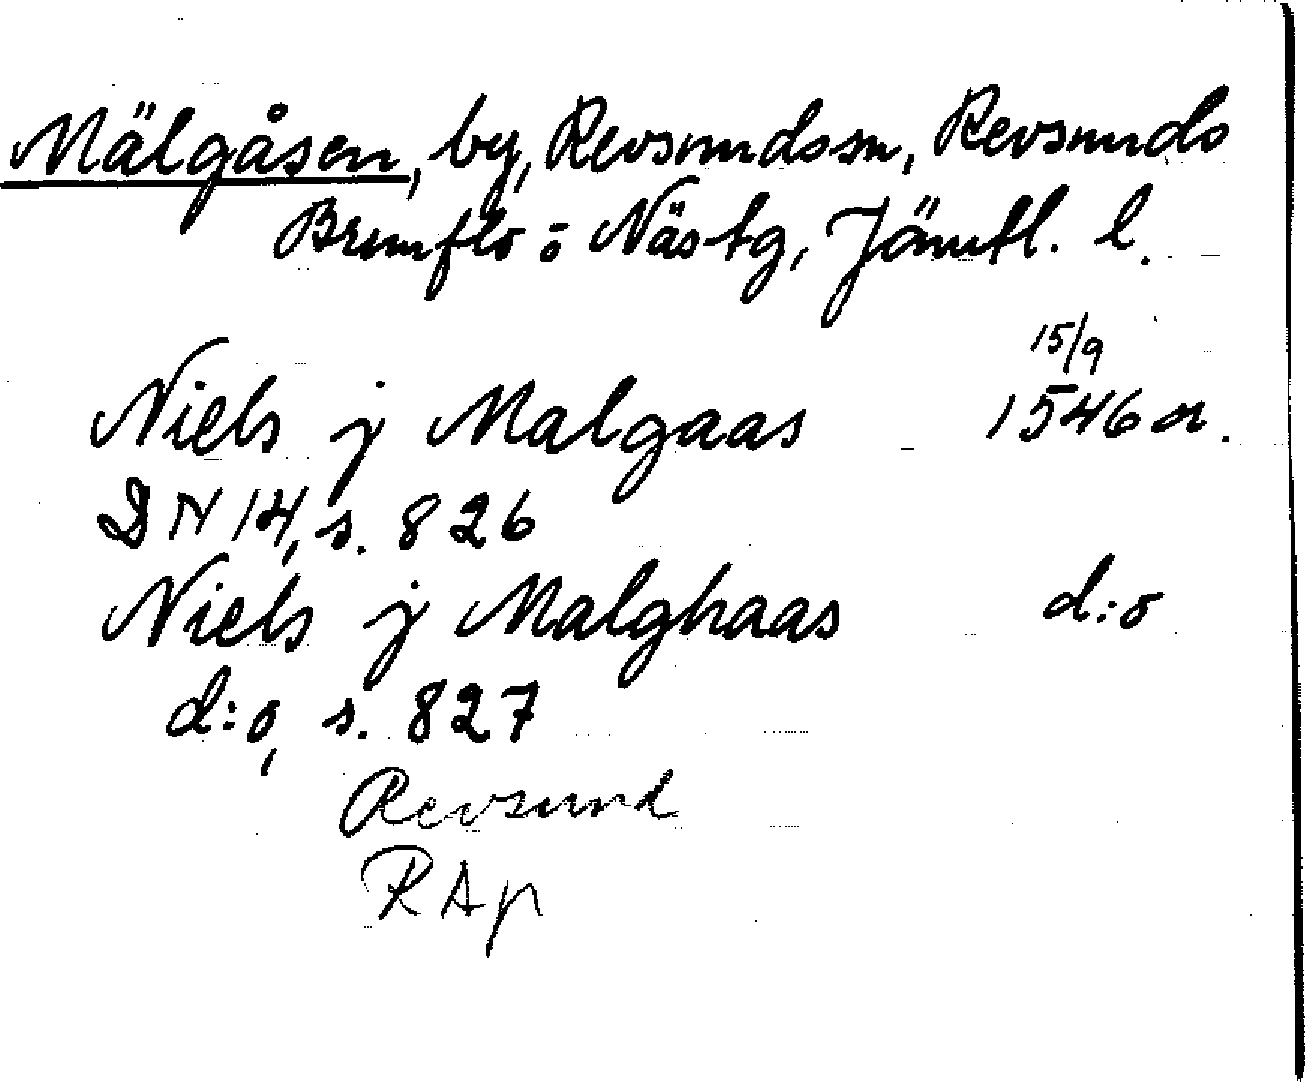 Mälgåsen, by, Revsunds sn, Revsunds
Brunflo o Näs tg, Jämtl. l.
15/9
Niels j Malgaas 1546 or.
DN 14, s. 826
Niels j Malghaas d:o
d:o, s. 827
Revsund
RAp